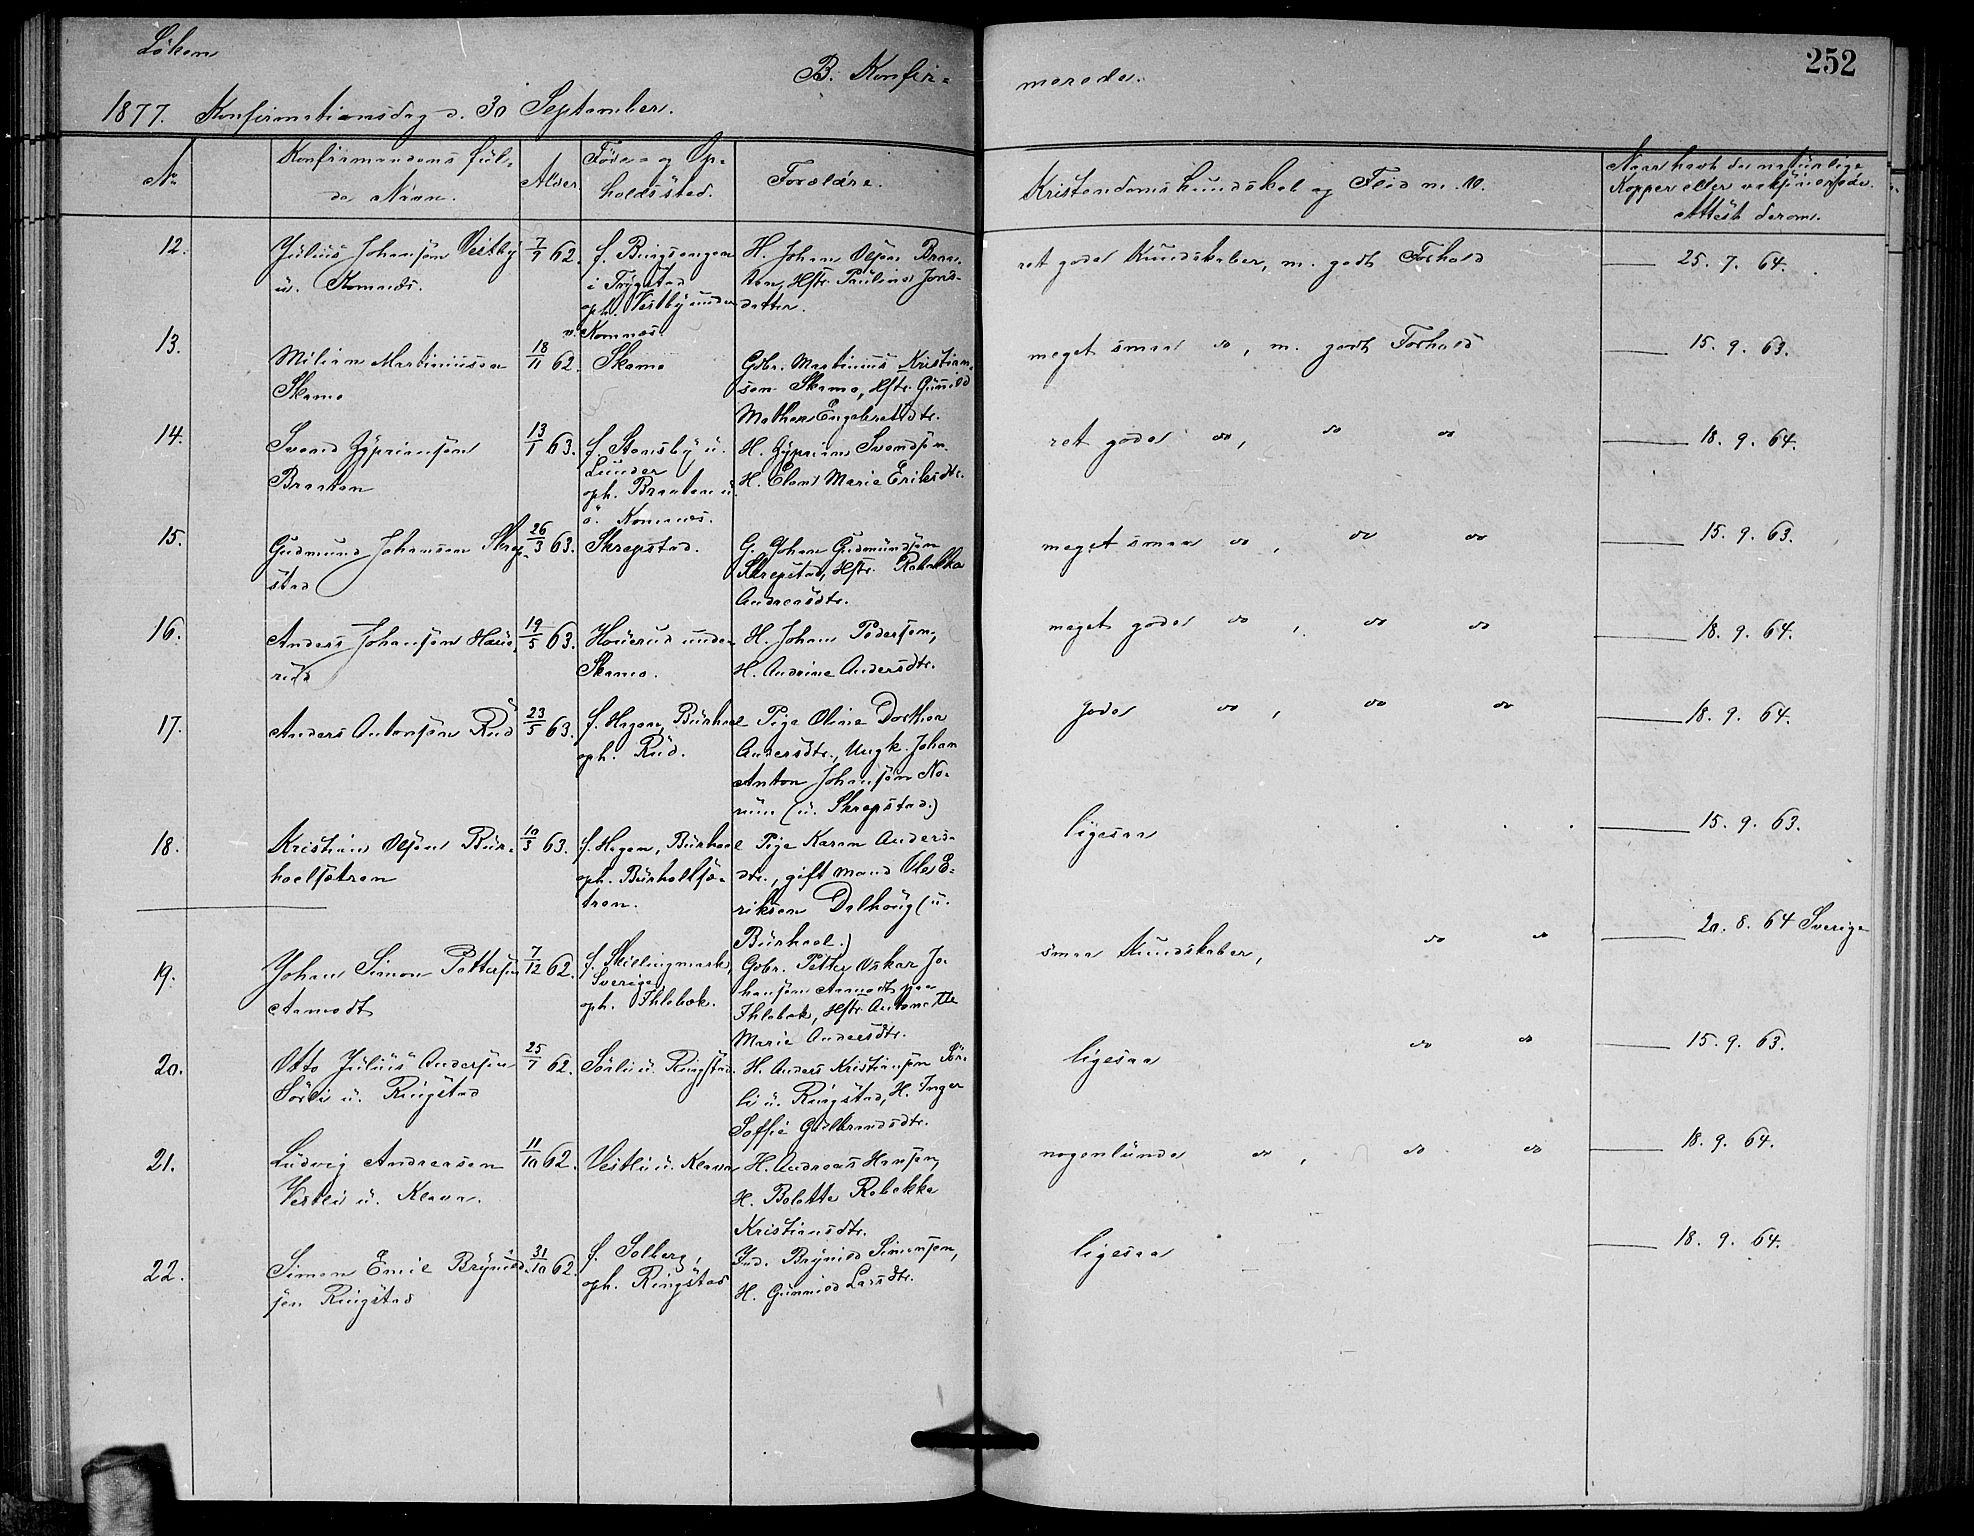 Löken
B. Konfir-
merede.
252
1877. Konfirmationsdag d. 30 September.
No
Konfirmandens ful-
de Navn.
Alder
Föde- og Op-
holdssted.
Forældre.
Kristendomskundskab og Flid m. M.
Naar havt de naturlige
Kopper eller
Attest derom.
12.
Julius Johansen Vestby
u. Komnæs.
7/7 62.
f. Bingsengen
i Trygstad
oph. Vestby under
v. Komnæs
H. Johan Olsen Braa-
ten, Hstr. Pauline Jons-
datter.
ret gode Kundskaber, m. godt Forhold
25. 7. 64.
13.
Milian Martiniussen
Skamo
18/11 62.
Skamo
Gdbr. Martinius Kristian-
sen Skamo, Hstr. Gunild
Mathea Engebretsdtr.
meget smaa do, m. godt Forhold
15. 9. 63.
14.
Svend Zypriansen
Braaten
13/1 63.
f. Stensby u.
Lunder
oph. Braaten u.
ö. Komnæs.
H. Zyprian Svendsen
H. Marie Eriksdtr.
ret gode do, do do
18. 9. 64.
15.
Gudmund Johansen Skrep-
stad
26/3 63.
Skrepstad.
G. Johan Gudmundsen
Skrepstad, Hstr. Rebekka
Andreasdtr.
meget smaa do, do do
15. 9. 63.
16.
Anders Johansen Haue-
rud
19/5 63.
Houerud under
Skamo.
H. Johan Pedersen,
H. Andrine Andersdtr.
meget gode do, do do
18. 9. 64.
17.
Anders Antonsen Rud
23/5 63.
f. Hagen, Burhol
oph. Rud.
Pige Oline Dorthea
Andersdtr., Ungk. Johan
Anton Johansen No-
rum (u. Skrepstad.)
gode do, do do
18. 9. 64.
18.
Kristian Olsen Bur-
hoelsætren
10/3 63.
f. Hagen, Burhoel
oph. Burhollsæ-
tren.
Pige Karen Anders-
dtr., gift Mand Ole E-
riksen Dalhoug (u.
Burhoel.)
ligesaa
15. 9. 63.
19.
Johan Simon Pettersen
Aamodt
7/12 62.
f. Skillingmark,
Sverige,
oph. Ihlebæk.
Gdbr. Petter Oskar Jo-
hansen Aamodt paa
Ihlebæk, Hstr. Antonette
Marie Andersdtr.
smaa Kundskaber, do do
20. 8. 64 Sverige
20.
Otto Julius Andersen
Sörli u. Ringstad
25/7 62.
Sörli u. Ringstad.
H. Anders Kristiansen Sör-
li u. Ringstad, H. Inger
Soffie Gulbrandsdtr.
ligesaa do do
15. 9. 63.
21.
Ludvig Andreasen
Vestli u. Klava.
11/10 62.
Vestli u. Klava
H. Andreas Hansen,
H. Bolette Rebekka
Kristiansdtr.
nogenlunde do, do do
18. 9. 64.
22.
Simon Emil Brynild-
sen Ringstad
31/10 62.
f. Solberg,
oph. Ringstad
Ind. Brynild Simensen,
H. Gunnild Larsdtr.
ligesaa
18. 9. 64.